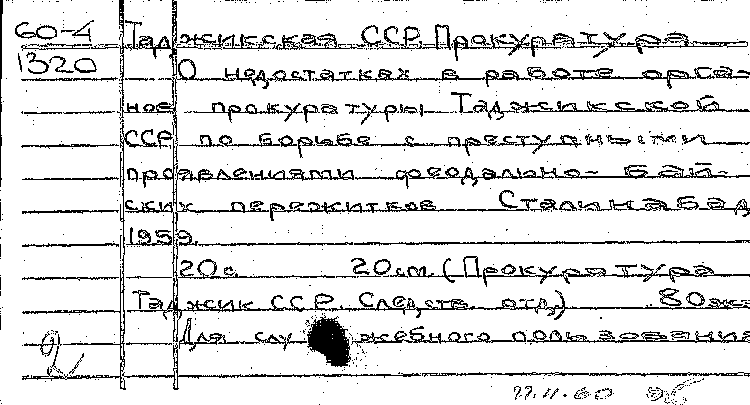 60-4 Таджикская ССР. Прокуратура
1320 О недостатках в работе орга-
нов прокуратуры Таджикской
ССР по борьбе с преступными
проявлениями феодально-бай-
ских пережитков Сталинабад
1959.
20с. 20см. (Прокуратура
Таджик ССР. Следств. отд.) 80экз
Для служебного пользования
2
22.11.60